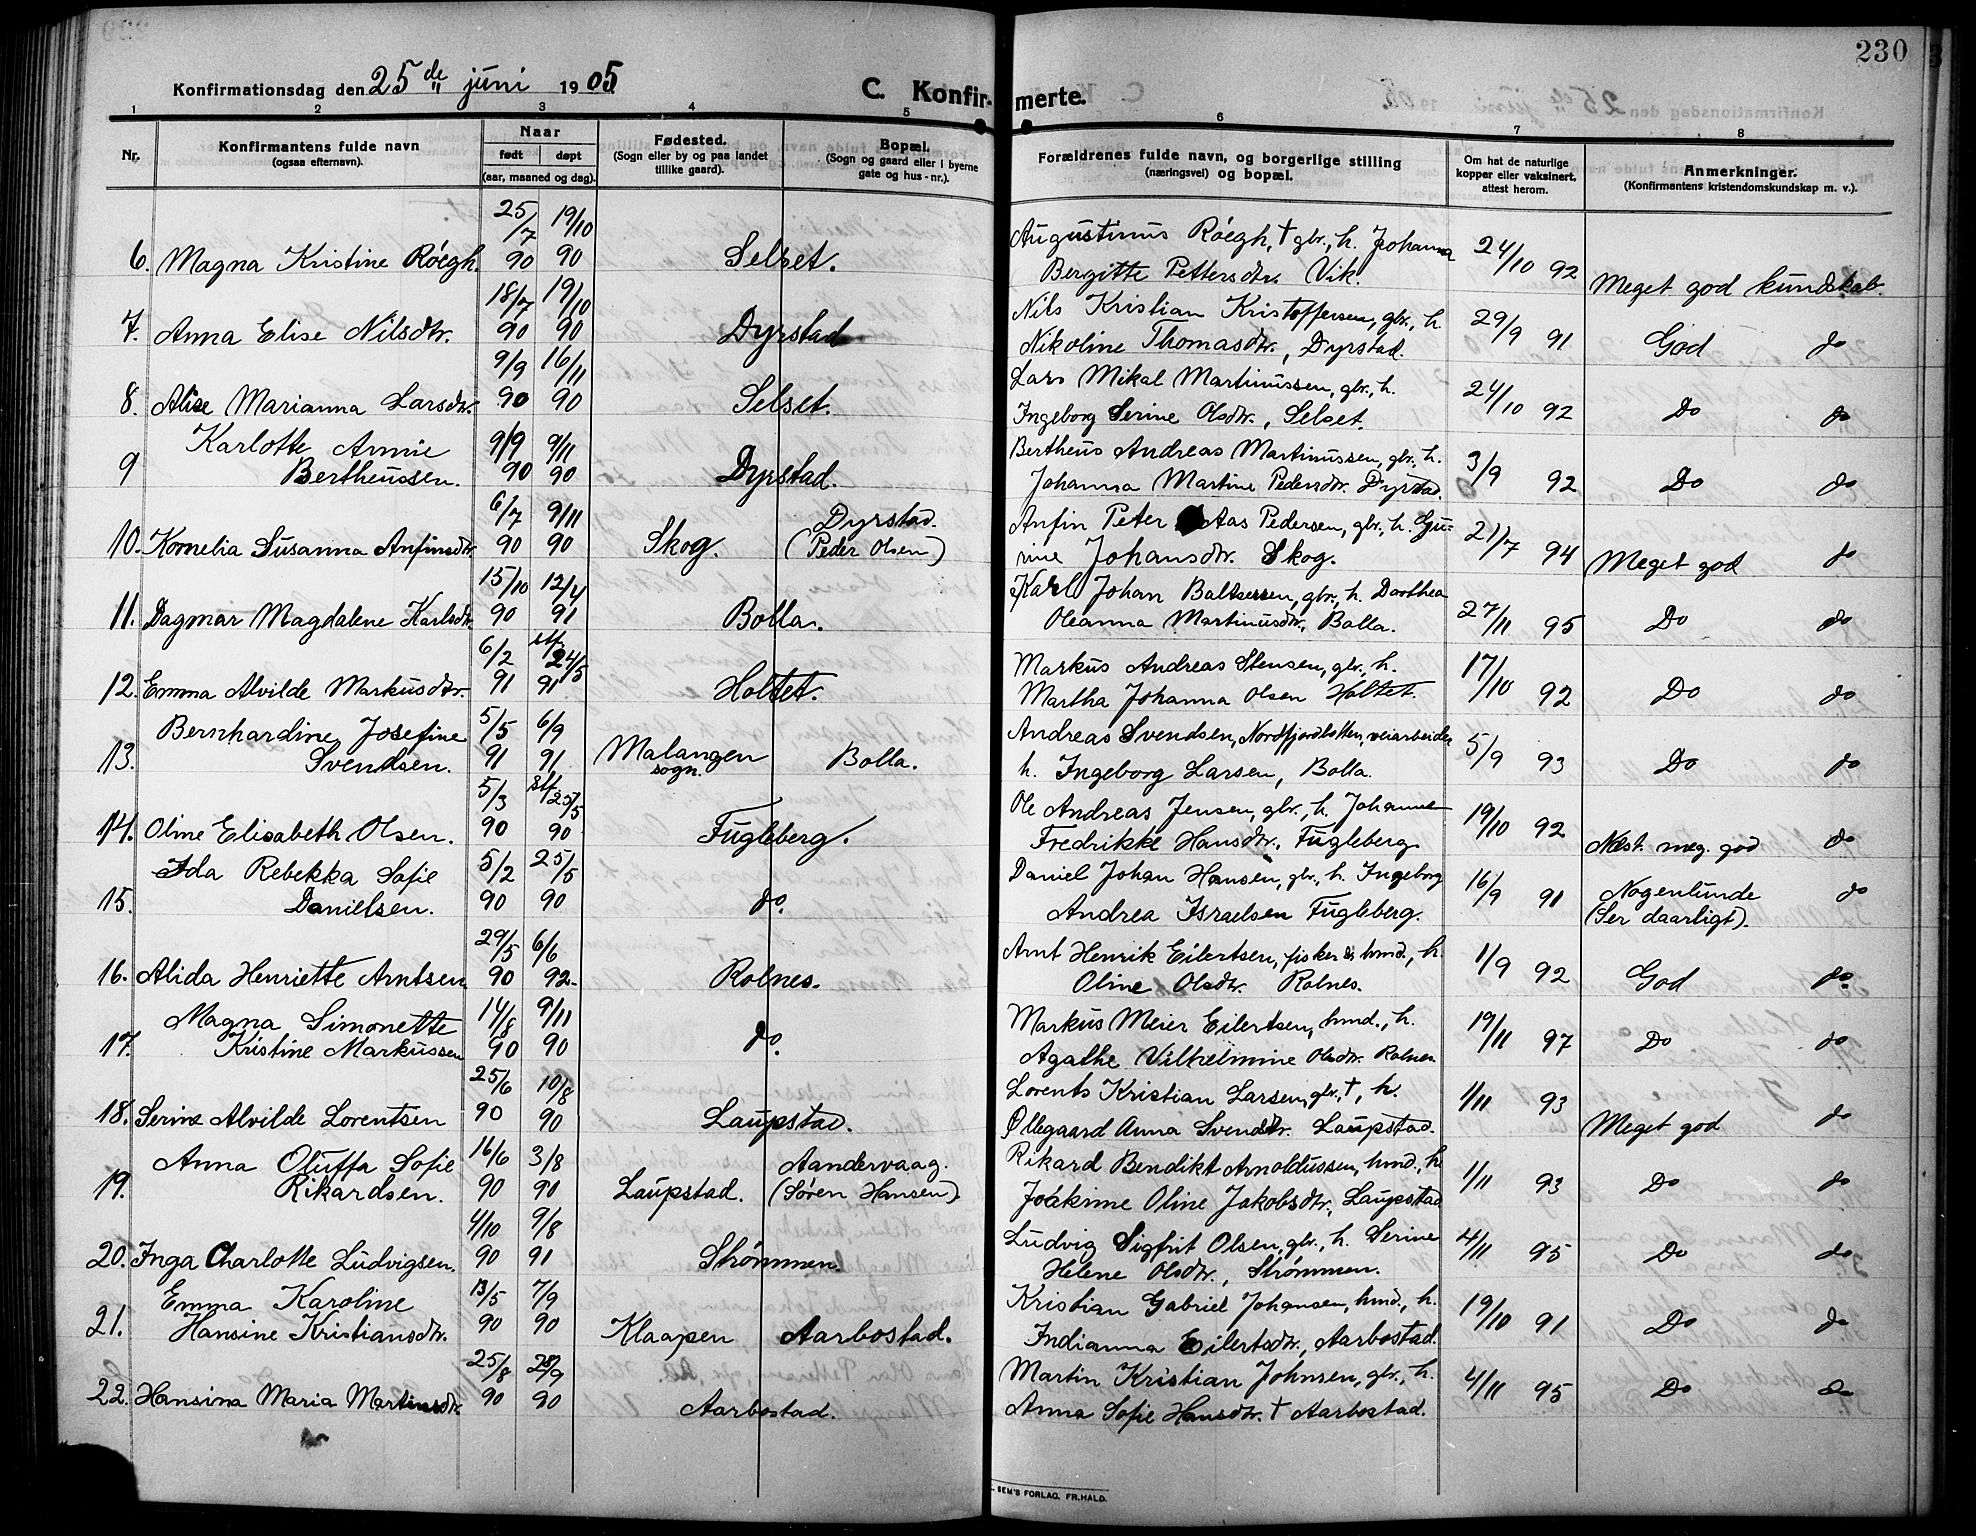 230
Konfirmationsdag den 25de juni 1905.
C. Konfirmerte.
1 2 3 4 5 6 7 8
Nr.
Konfirmantens fulde navn
(ogsaa efternavn).
Naar
født døpt
(aar, maaned og dag).
Fødested.
(Sogn eller by og paa landet
tillike gaard).
Bopæl.
(Sogn og gaard eller i byerne
gate og hus-nr.).
Forældrenes fulde navn, og borgerlige stilling
(næringsvei) og bopæl.
Om hat de naturlige
kopper eller vaksinert,
attest herom.
Anmerkninger.
(Konfirmantens kristendomskundskap m. v.).
25/7 19/10 Augustinus Röegh, † gbr., h. Johanna 24/10 92
6. Magna Kristine Röegh. 90 90 Selset. Bergitte Pettersdtr. Vik. Meget god kundskab.
18/7 19/10 Nils Kristian Kristoffersen, gbr., h. 29/9 91
7. Anna Elise Nilsdtr. 90 90 Dyrstad Nikoline Thomasdtr., Dyrstad. God do
9/9 16/11 Lars Mikal Martinussen, gbr., h. 24/10 92
8. Alise Marianna Larsdtr. 90 90 Selset. Ingeborg Serine Olsdtr., Selset. Do do
Karlotte Annie 9/9 9/11 Bertheus Andreas Martinussen, gbr., h. 3/9 92
9 Bertheussen. 90 90 Dyrstad. Johanna Martine Pedersdtr. Dyrstad. Do do
6/7 9/11 Dyrstad. Anfin Peter Aas Pedersen, gbr., h. Gu- 21/7 94
10. Kornelia Susanna Anfinsdtr. 90 90 Skog. (Peder Olsen) rine Johansdtr. Skog. Meget god do
15/10 12/4 Karl Johan Baltsersen, gbr., h. Dorthea 27/11 95
11. Dagmar Magdalene Karlsdtr. 90 91 Bolla. Oleanna Martinusdtr., Bolla. Do do
6/2 stf 24/5 Markus Andreas Stensen, gbr., h. 17/10 92
12. Emma Alvilde Markusdtr. 91 91 Holtet. Martha Johanna Olsen Holtet. Do do
Bernhardine Josefine 5/5 6/9 Andreas Svendsen, Nordfjordbotten, veiarbeider 5/9 93
13. Svendsen. 91 91 Malangen sogn. Bolla. h. Ingeborg Larsen, Bolla. Do do
5/3 stf 25/5 Ole Andreas Jensen, gbr., h. Johanne 19/10 92
14. Oline Elisabeth Olsen. 90 90 Fugleberg. Fredrikke Hansdtr., Fugleberg. Næst. meg. god do
Ida Rebekka Sofie 5/2 25/5 Daniel Johan Hansen, gbr., h. Ingeborg 16/9 91 Nogenlunde do
15. Danielsen. 90 90 do. Andrea Israelsen Fugleberg. (Ser daarligt).
29/5 6/6 Arnt Henrik Eilertsen, fisker & hmd., h. 1/9 92
16. Alida Henriette Arntsen 90 92 Rolnes. Oline Olsdtr. Rolnes. God do
Magna Simonette 14/8 9/11 Markus Meier Eilertsen, hmd., h. 19/11 97
17. Kristine Markussen 90 90 do. Agathe Vilhelmine Olsdtr. Rolnes Do do
25/6 10/8 Lorents Kristian Larsen, gbr., †, h. 1/11 93
18. Serine Alvilde Lorentsen 90 90 Laupstad. Øllegaard Anna Svendsdtr. Laupstad. Meget god do
Anna Oluffa Sofie 16/6 3/8 Aandervaag. Rikard Bendikt Arnoldussen, hmd., h 1/11 93
19. Rikardsen. 90 90 Laupstad. (Søren Hansen). Joakime Oline Jakobsdtr., Laupstad Do do
4/10 9/8 Ludvig Sigfrit Olsen, gbr., h. Serine 4/11 95
20. Inga Charlotte Ludvigsen. 90 91 Strømmen. Helene Olsdtr., Strømmen. Do do
Emma Karoline 13/5 7/9 Kristian Gabriel Johansen, hmd., h. 19/10 91
21. Hansine Kristiansdtr. 90 90 Klaapen Aarbostad. Indianna Eilertsdtr., Aarbostad. Do do
25/8 28/9 Martin Kristian Johnsen, gbr., h. 4/11 95
22. Hansina Maria Martinsdtr. 90 90 Aarbostad. Anna Sofie Hansdtr. † Aarbostad. Do do
SEM'S FORLAG. FR.HALD.